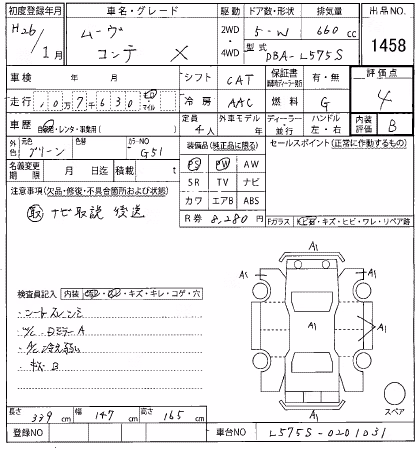 初度登録年月 車名・グレード 駆動 ドア数・形状 排気量 出品NO.
H26/1月 ムーヴ コンテ X 2WD・4WD 5-W 660cc 1458
型式 DBA-L575S
車検 年 月 シフト CAT 保証書 有・無 評価点 4
走行 107630 km マイル 冷房 AAC 燃料 G
車歴 自家用・レンタ・事業用( ) 定員 4人 外車モデル 年 ディーラー・並行 ハンドル 左・右 内装評価 B
外色 元色 グリーン カラーNO G51 装備品(純正品に限る) セールスポイント(正常に作動するもの)
名義変更期限 月 日迄 積載 t PS PW AW
注意事項(欠品・修復・不具合箇所および状態) SR TV ナビ
取 ナビ取説 後送 カワ エアB ABS
R券 8,280円 Fガラス・キズ・ヒビ・ワレ・リペア跡
A1
A1 A1
検査員記入 内装・キズ・キレ・コゲ・穴
シートスレ シミ
A1 A1
A/C 冷え弱い
A1
スペア
長さ 339cm 幅 147cm 高さ 165cm
登録NO 車台NO L575S-0201031